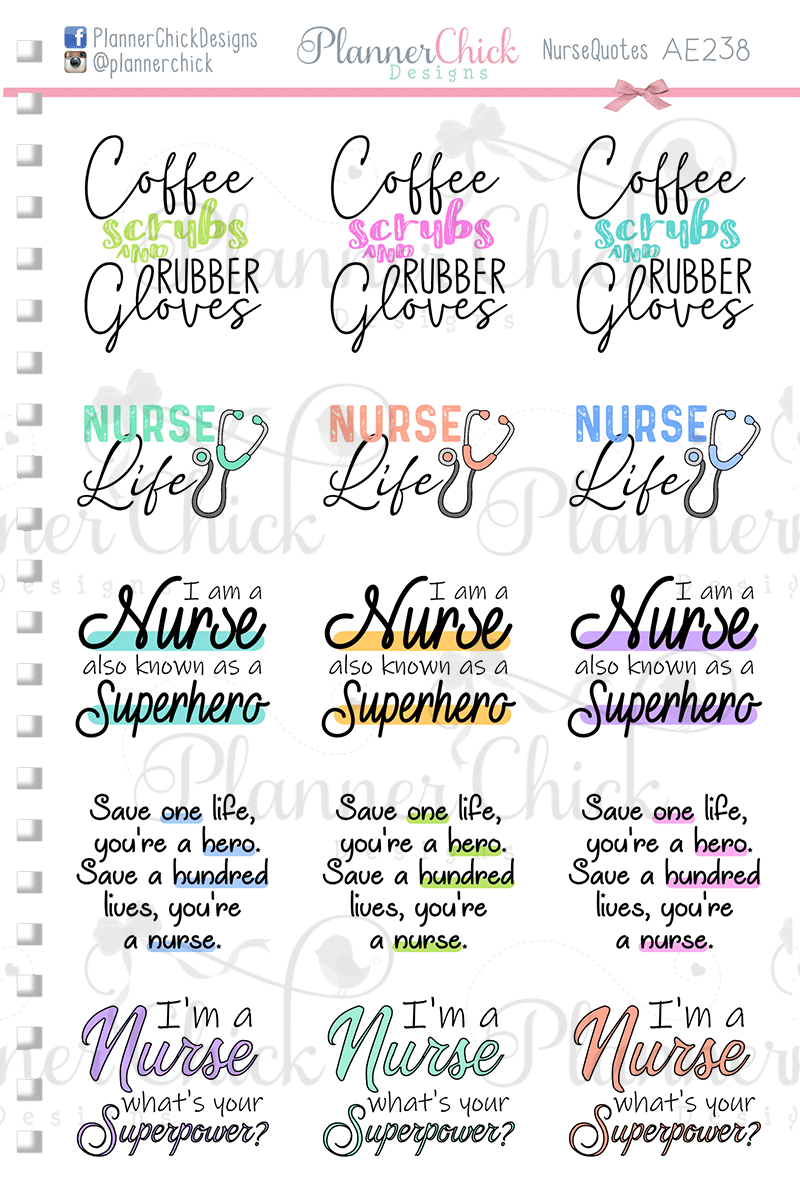 PlannerChickDesigns
@plannerchick
PlannerChick
Designs
NurseQuotes AE238
Coffee
scrubs
AND RUBBER
Gloves
Coffee
scrubs
AND RUBBER
Gloves
Coffee
scrubs
AND RUBBER
Gloves
NURSE
Life
NURSE
Life
NURSE
Life
I am a
Nurse
also known as a
Superhero
I am a
Nurse
also known as a
Superhero
I am a
Nurse
also known as a
Superhero
Save one life,
you're a hero.
Save a hundred
lives, you're
a nurse.
Save one life,
you're a hero.
Save a hundred
lives, you're
a nurse.
Save one life,
you're a hero.
Save a hundred
lives, you're
a nurse.
I'm a
Nurse
what's your
Superpower?
I'm a
Nurse
what's your
Superpower?
I'm a
Nurse
what's your
Superpower?